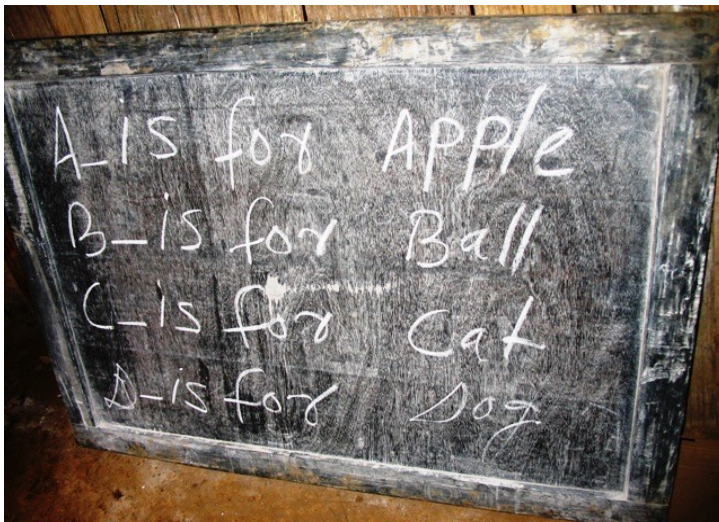 A_is for Apple
B_is for Ball
C_is for Cat
D_is for Dog